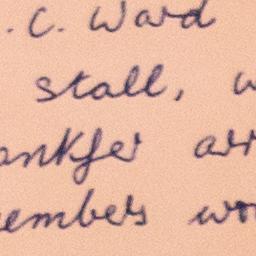 . C. Ward
stall, w
ankfer arr
embers wo